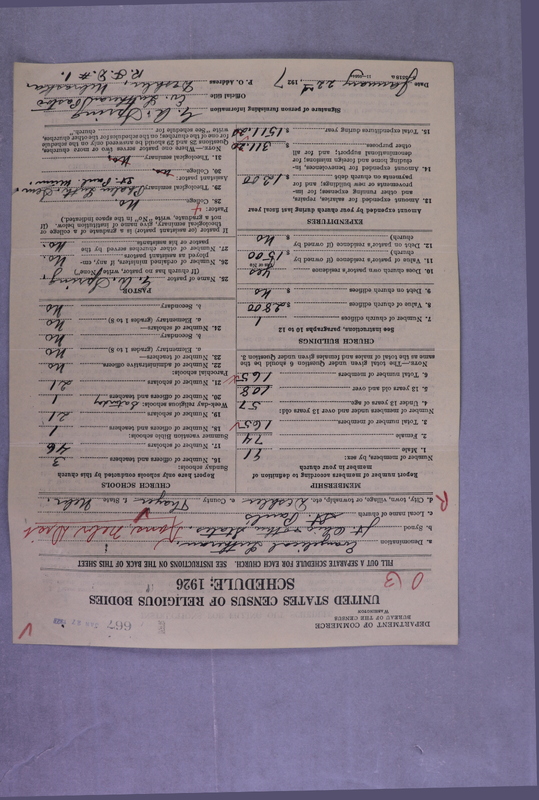 DEPARTMENT OF COMMERCE
BUREAU OF THE CENSUS
WASHINGTON
667
UNITED STATES CENSUS OF RELIGIOUS BODIES
SCHEDULE; 1926
FILL OUT A SEPARATE SCHEDULE FOR EACH CHURCH. SEE INSTRUCTIONS ON THE BACK OF THIS SHEET
a. Denomination Evangelical Lutheran
b. Synod
c. Local name of church St. Pauls
d. City, town, village, or township, etc. Deshler e. County Thayer f. State Nebr.
MEMBERSHIP
Report number of members according to definition of member in your church
Number of members, by sex:
1. Male 91
2. Female 74
3. Total number of members 165
Number of members under and over 13 years old:
4. Under 13 years of age 57
5. 13 years old and over 108
6. Total number of members 165
NOTE.—The total given under Question 6 should be the
same as the total of males and females given under Question 3.
CHURCH BUILDINGS
See instructions, paragraphs 10 to 12
7. Number of church edifices 1
8. Value of church edifices $ 2800
9. Debt on church edifices $ no
10. Does church own pastor's residence yes
(Yes or No)
11. Value of pastor's residence (if owned by
church) $ 1500
12. Debt on pastor's residence (if owned by
church) $ no
EXPENDITURES
Amount expended by your church during last fiscal year
13. Amount expended for salaries, repairs,
and other running expenses; for im-
provements or new building; and for
payments on church debt $ 1200
14. Amount expended for benevolences, in-
cluding home and foreign missions; for
denominational support; and for all
other purposes $ 311.20
15. Total expenditures during year $ 1511.20
CHURCH SCHOOLS
Report here only schools conducted by this church
Sunday schools:
16. Number of officers and teachers 3
17. Number of scholars 46
Summer vacation Bible schools:
18. Number of officers and teachers 1
19. Number of scholars 21
Week-day religious schools: Saturday
20. Number of officers and teachers 1
21. Number of scholars 21
Parochial schools:
22. Number of administrative officers no
23. Number of teachers—
a. Elementary (grades 1 to 8) no
b. Secondary no
24. Number of scholars—
a. Elementary (grades 1 to 8) no
b. Secondary no
PASTOR
25. Name of pastor
(If church has no pastor, write "None")
26. Number of ordained ministers, if any, em-
ployed as assistant pastors no.
27. Number of other churches served by the
pastor or his assistants no.
If pastor (or assistant pastor) is a graduate of a college or
theological seminary, give name of institution below. (If
not a graduate, write "No" in the space indicated.)
Pastor:
28. College no
29. Theological seminary
St. Paul. Minn.
Assistant pastor:
30. College no
31. Theological seminary no
NOTE.—Where one pastor serves two or more churches,
Questions 28 and 29 should be answered only on the schedule
for one of the churches; on the schedules for the other churches,
write "See schedule for church."
Signature of person furnishing information
Official title Ev. Lutheran Pastor
P. O. Address Deshler, Nebraska,
R. F. D. # 1.
Date January 22nd 1927